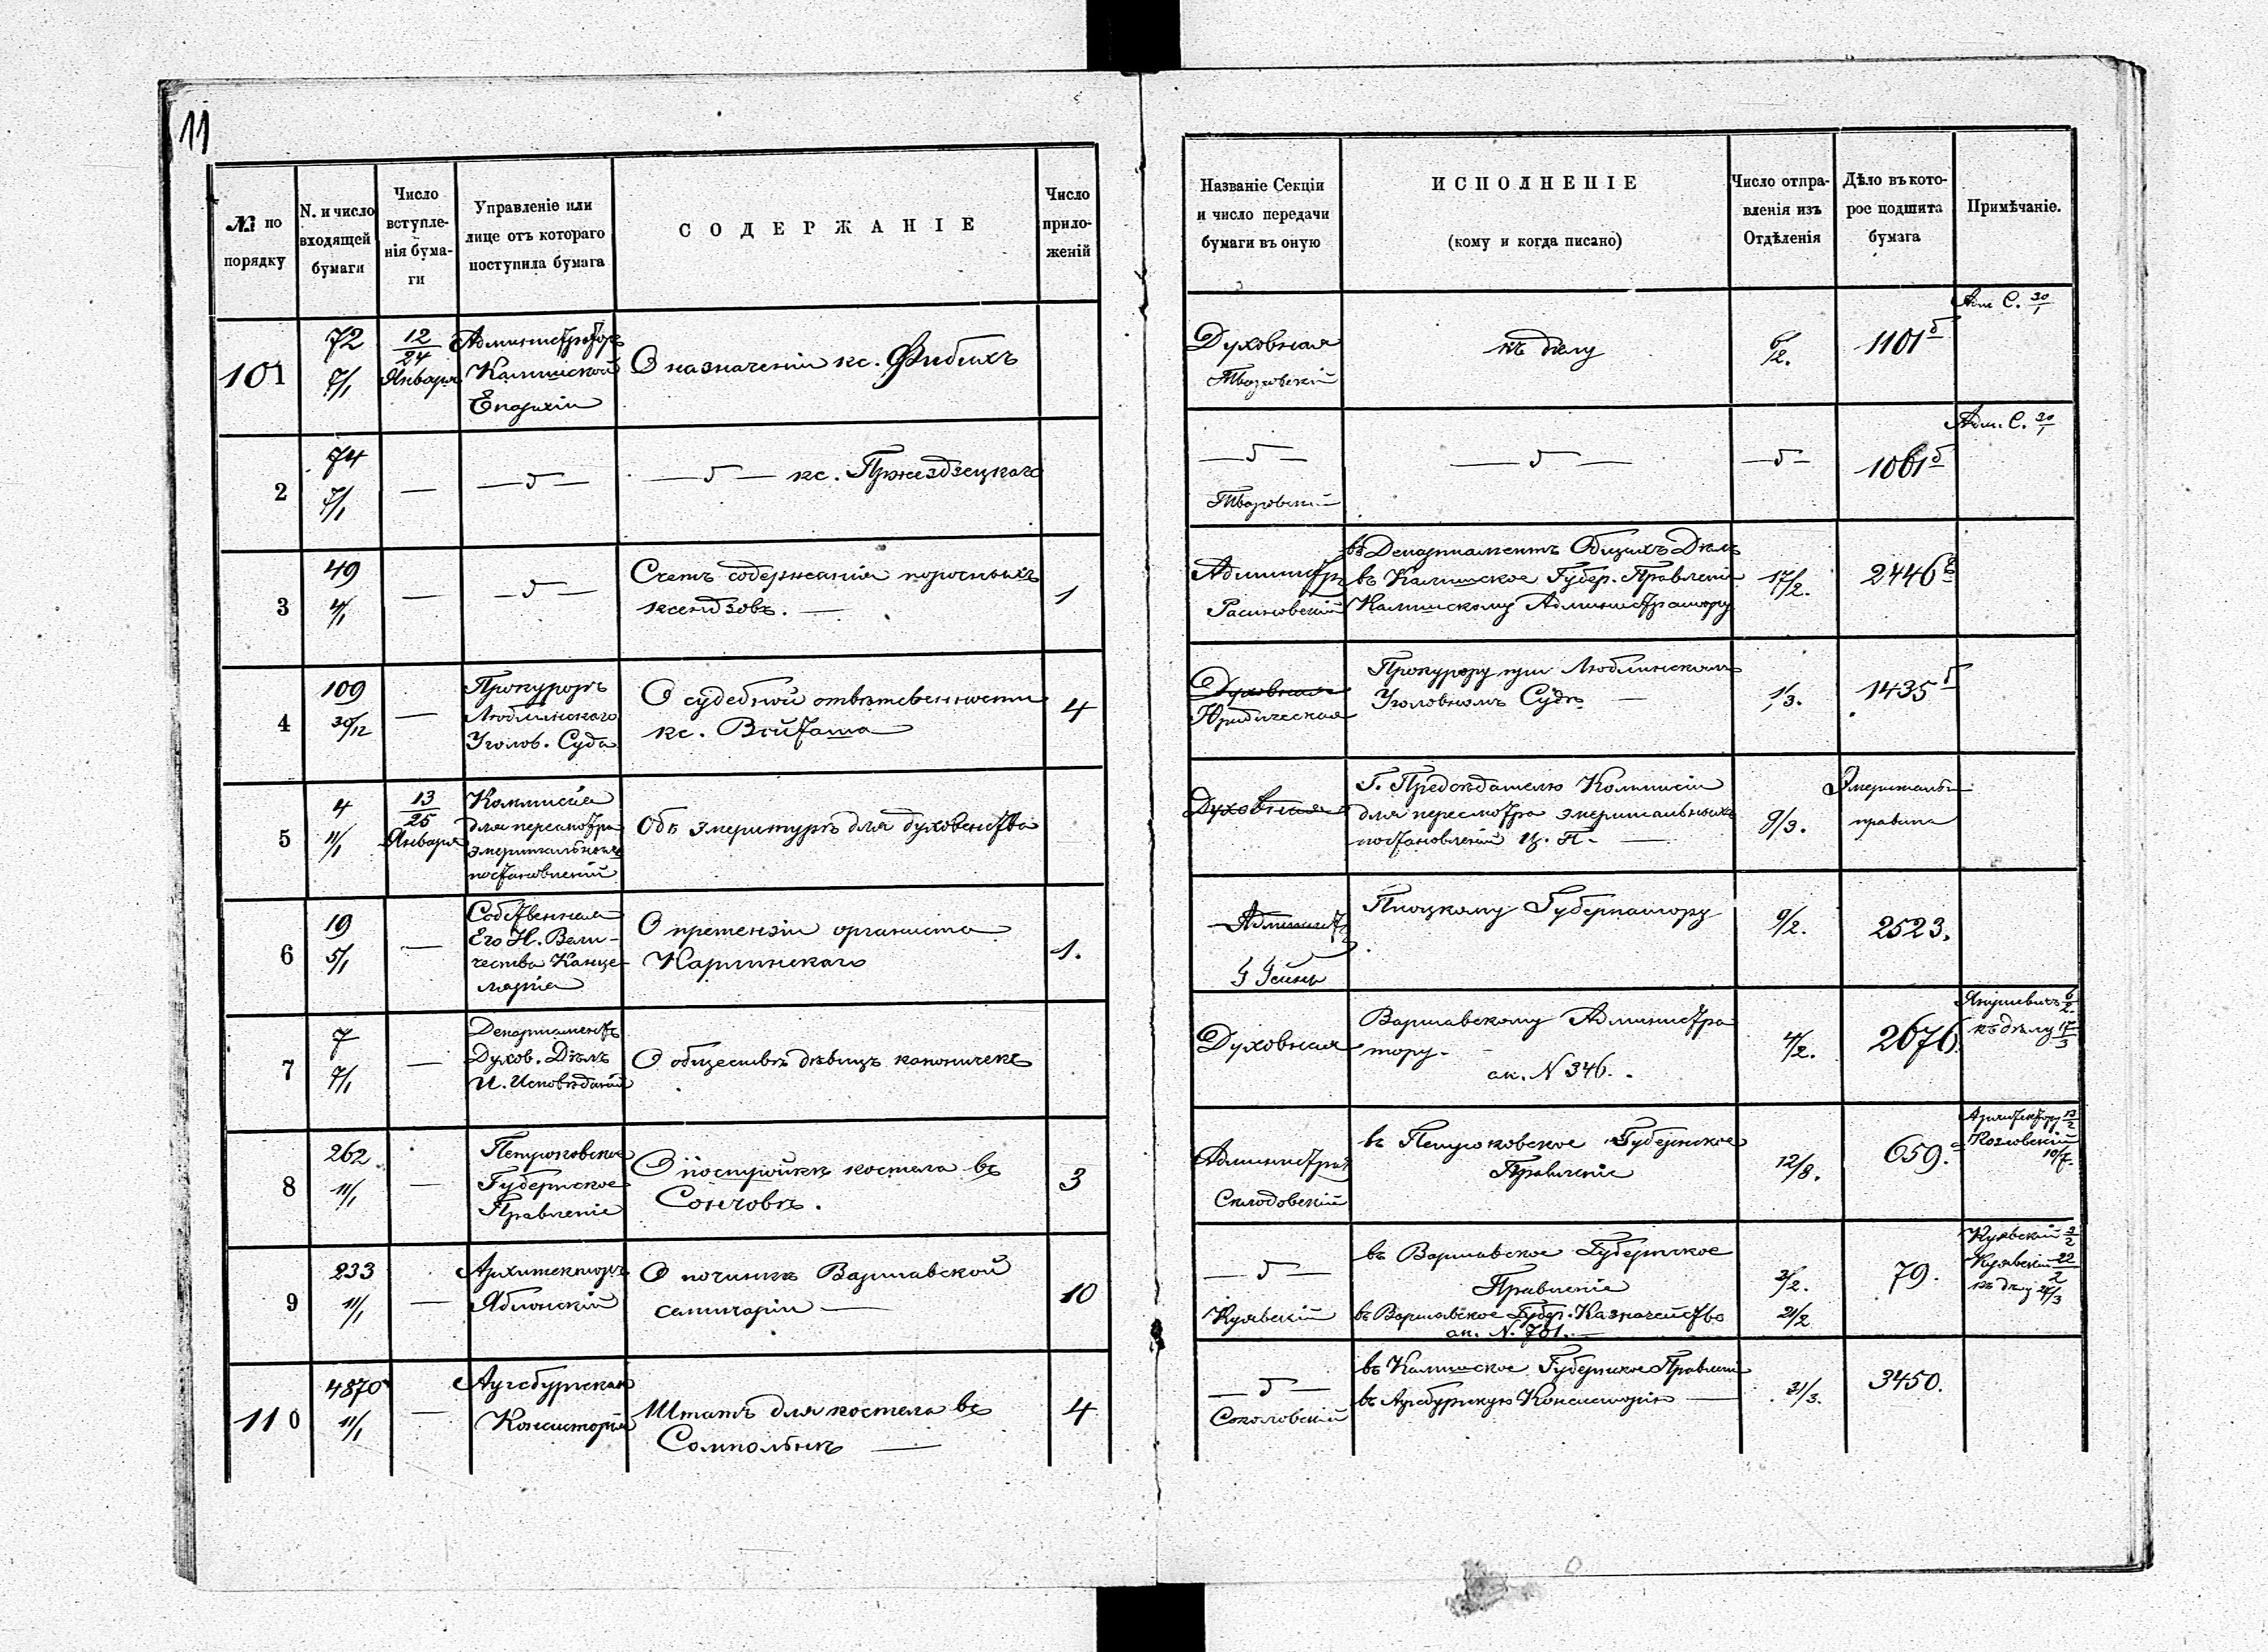 11
№ по порядку
N. и число входящей бумаги
Число вступленія бумаги
Управленіе или лице отъ котораго поступила бумага
СОДЕРЖАНІЕ
Число приложеній
Названіе Секціи и число передачи бумаги въ оную
ИСПОЛНЕНІЕ
(кому и когда писано)
Число отправленія изъ Отдѣленія
Дѣло въ которое подшита бумага
Примѣчаніе.
101
72
7/1
12/24 Января
Администраторъ
Калишской
Епархіи
О назначеніи кс. Фибихъ
Духовная
къ дѣлу
6/2.
1101 б
Адм. С. 30/1
2
74
7/1
—
— б —
— б — кс. Пржездзецкаго
— б —
— б —
— б —
1061 б
Адм. С. 30/1
3
49
4/1
—
— б —
Счетъ содержанія порочныхъ
ксендзовъ. —
1
Администр
Расиновскій
въ Департаментъ Общихъ Дѣлъ
въ Калишское Губер. Правленіе
Калишскому Администратору
17/2.
2446
4
109
30/12
—
Прокуроръ
Люблинскаго
Уголов. Суда
О судебной отвѣтственности
кс. Войташа
4
Духовная
Юридическая
Прокурору при Люблинскомъ
Уголовномъ Судѣ —
1/3.
1435 б
5
4
11/1
13/25 Января
Коммисія
для пересмотра
эмеритальныхъ
постановленій
Объ эмеритурѣ для духовенства
Духовная
Г. Предсѣдателю Коммисіи
для пересмотра эмеритальныхъ
постановленій Ц. П. —
9/3.
Эмеритальн
правила
6
19
5/1
—
Собственная
Его И. Вели-
чества Канце-
лярія
О претензіи органиста
Карпинскаго
1.
Админист
Плоцкому Губернатору
9/2.
2523.
7
7
7/1
—
Департаментъ
Духов. Дѣлъ
И. Исповѣданій
О обществѣ дѣвицъ каноничекъ
Духовная
Варшавскому Администра
тору.
ак. N 346.
4/2.
2676.
Янушевичъ 6/2.
къ дѣлу 17/3
8
262
11/1
—
Петроковское
Губернское
Правленіе
О постройкѣ костела въ
Сончовѣ.
3
Администрат
Склодовскій
въ Петроковское Губернское
Правленіе
12/8.
659.
Архитектору 13/2
Козловскій
10/7.
9
233
11/1
—
Архитекторъ
Яблонскій
О починкѣ Варшавской
семинаріи —
10
— б —
Куявскій
въ Варшавское Губернское
Правленіе
въ Варшавское Губер. Казначейство
ак. N. 701. —
3/2.
21/2
79.
Куявскій 3/2
Куявскій 22/2
къ дѣлу 24/3
110
4870
11/1
—
Аугсбургская
Консисторія
Штатъ для костела въ
Сомпольнѣ —
4
— б —
Соколовскій
въ Калишское Губернское Правленіе
въ Аугсбургскую Консисторію —
31/3.
3450.